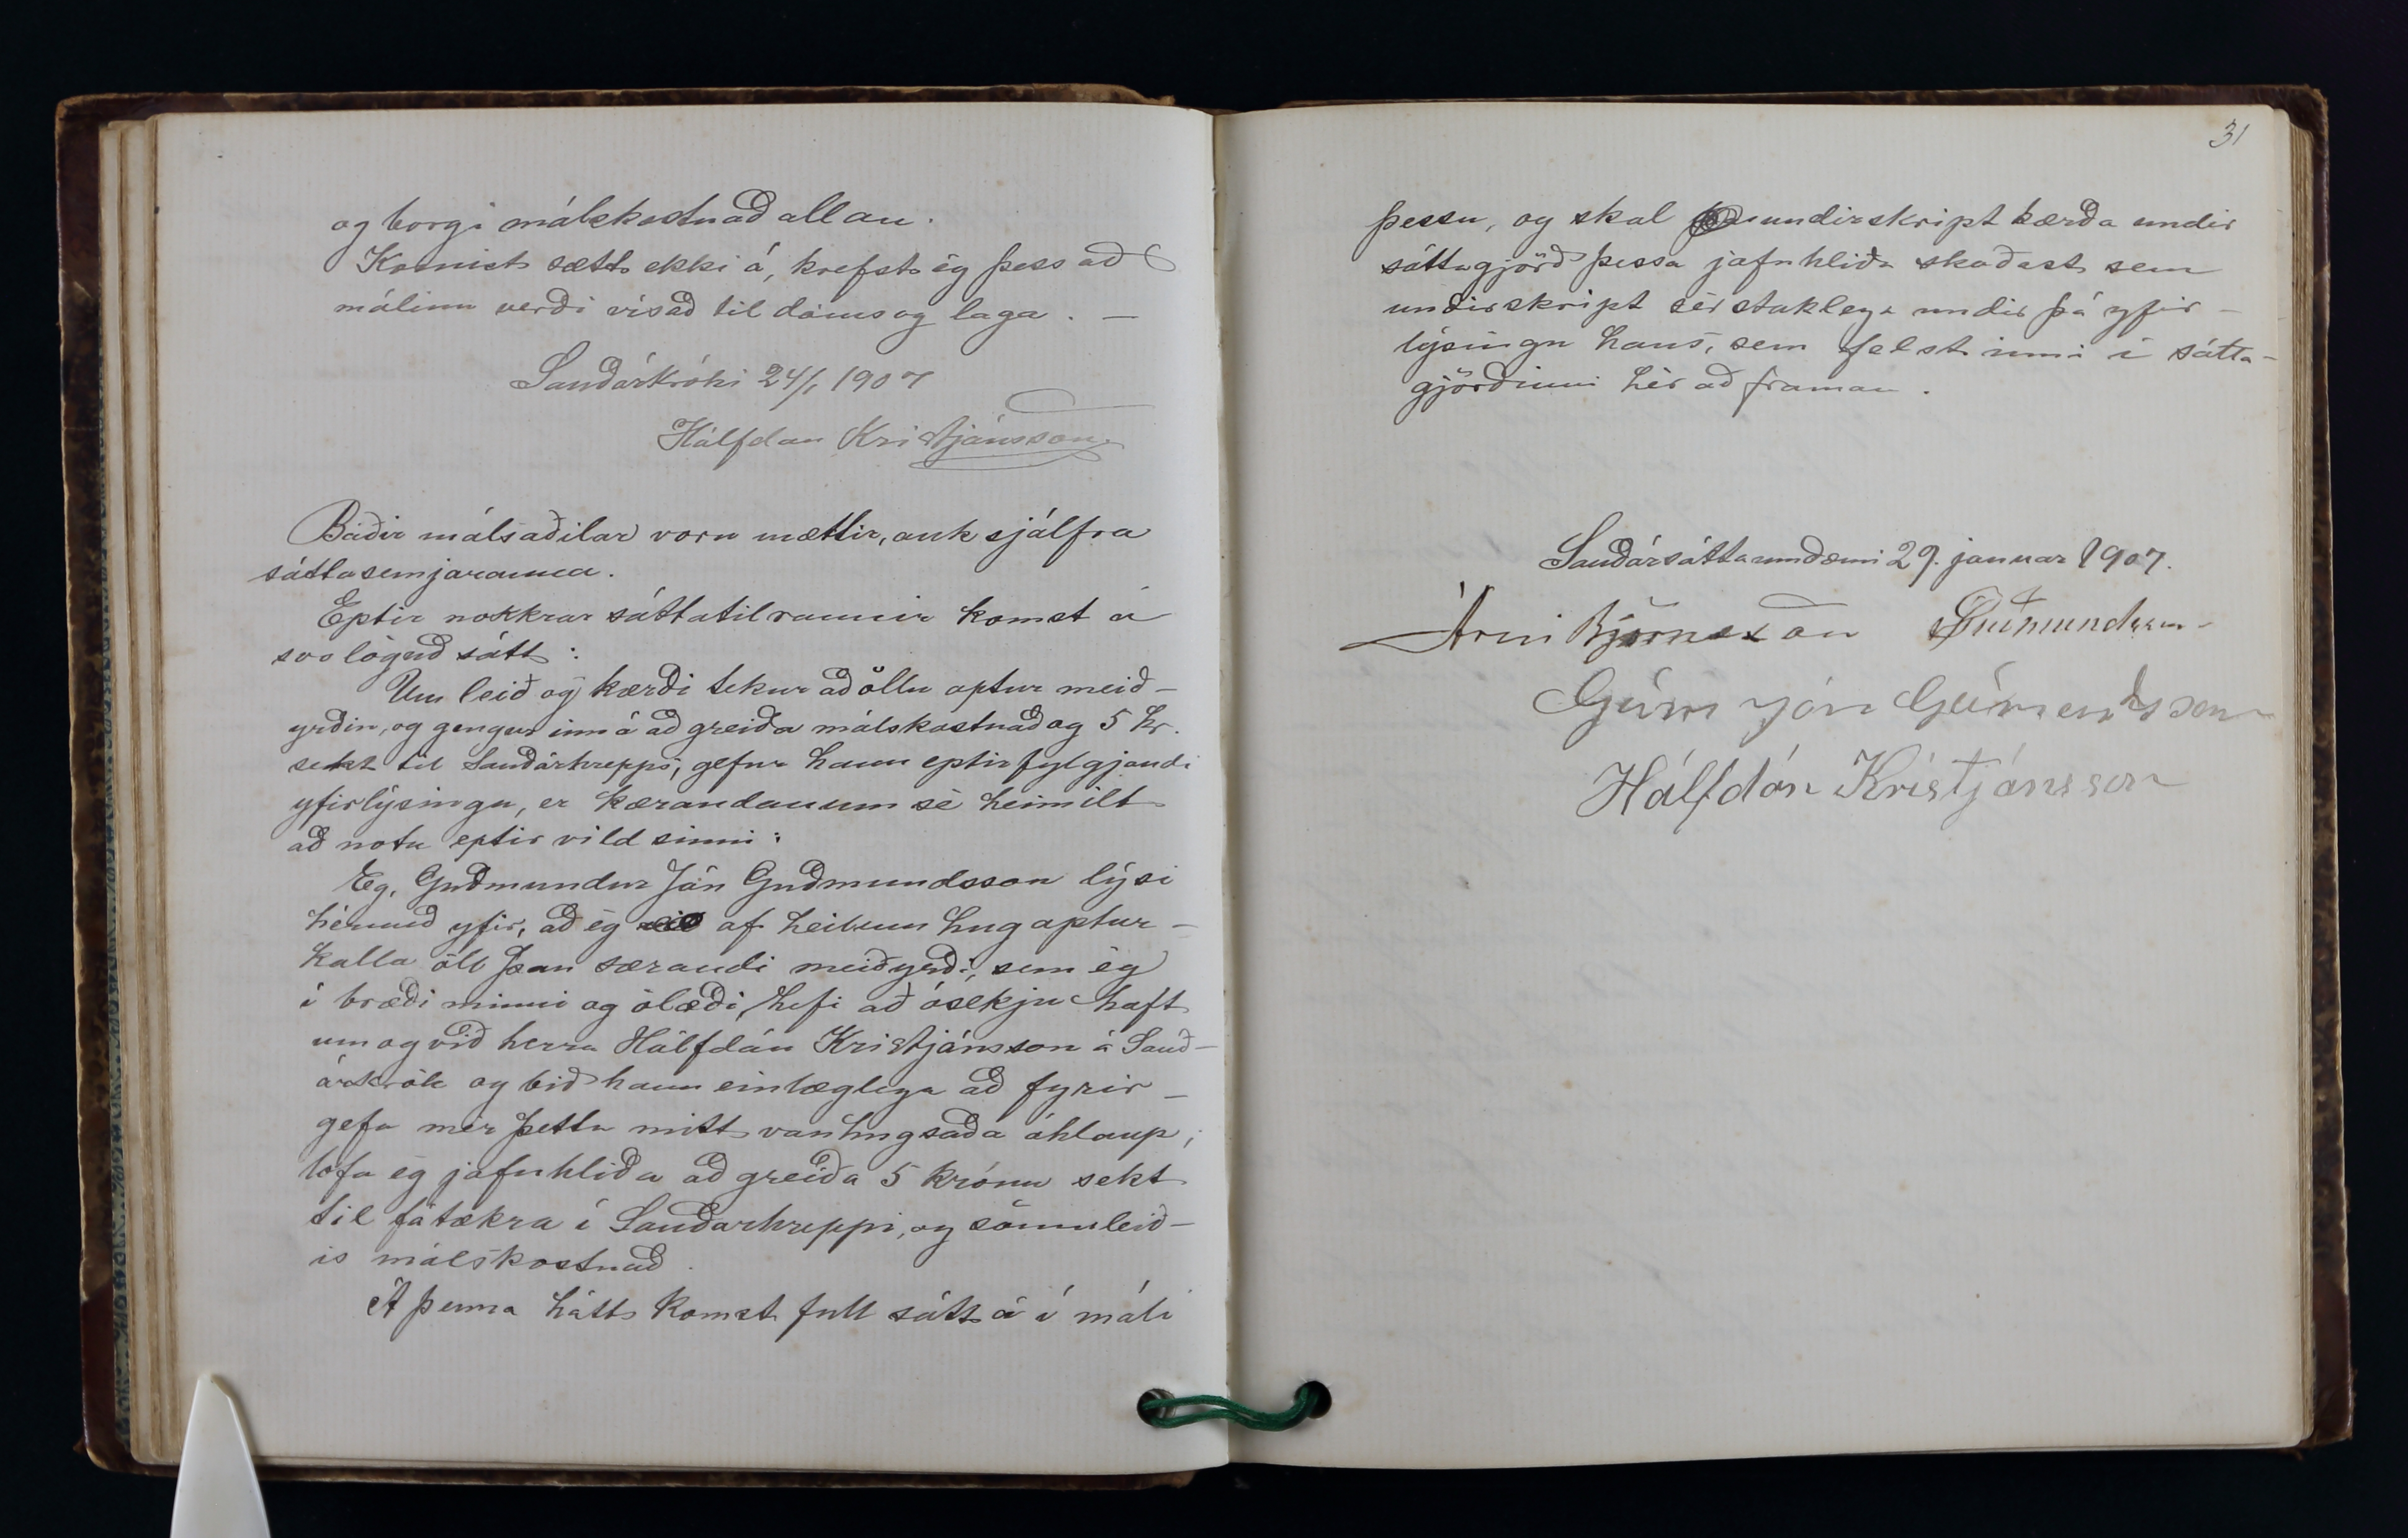 og borgi málskostnað allan.
Komist sætt ekki á, krefst ég þess að
málinu verði vísað til dóms og laga. —
Sauðárkróki 24/1 1907
Hálfdan Kristjánsson
Báðir málsaðilar voru mættir, auk sjálfra
sáttasemjaranna.
Eptir nokkrar sáttatilraunir komst á
svo löguð sátt:
Um leið og kærði tekur að öllu aptur meið-
yrðin, og gengur inn á að greiða málskostnað og 5 kr.
sekt til Sauðárhrepps, gefur hann eptirfylgjandi
yfirlýsingu, er kærandanum sé heimilt
að nota eptir vild sinni:
Eg, Guðmundur Jón Guðmundsson lýsi
hérmeð yfir, að ég af heilum hug aptur-
kalla öll þau særandi meiðyrði, sem ég
í bræði minni og ölæði, hefi að ósekju haft
um og við herra Hálfdán Kristjánsson á Sauð-
árkrók og bið hann einlæglega að fyrir-
gefa mér þetta mitt vanhugsaða áhlaup;
lofa ég jafnhliða að greiða 5 krónu sekt
til fátækra í Sauðarhreppi, og sömuleið-
is málskostnað.
Á þenna hátt komst full sátt á í máli
31
þessu, og skal undirskript kærða undir
sáttagjörð þessa jafnhliða skoðast sem
undirskript sérstaklega undir þá yfir-
lýsingu hans, sem felst inni í sátta-
gjörðinni hér að framan.
Sauðársáttaumdæmi 29. januar 1907.
Árni Björnsson Guðmundsson
Guðm Jón Guðmundsson
Hálfdán Kristjánsson